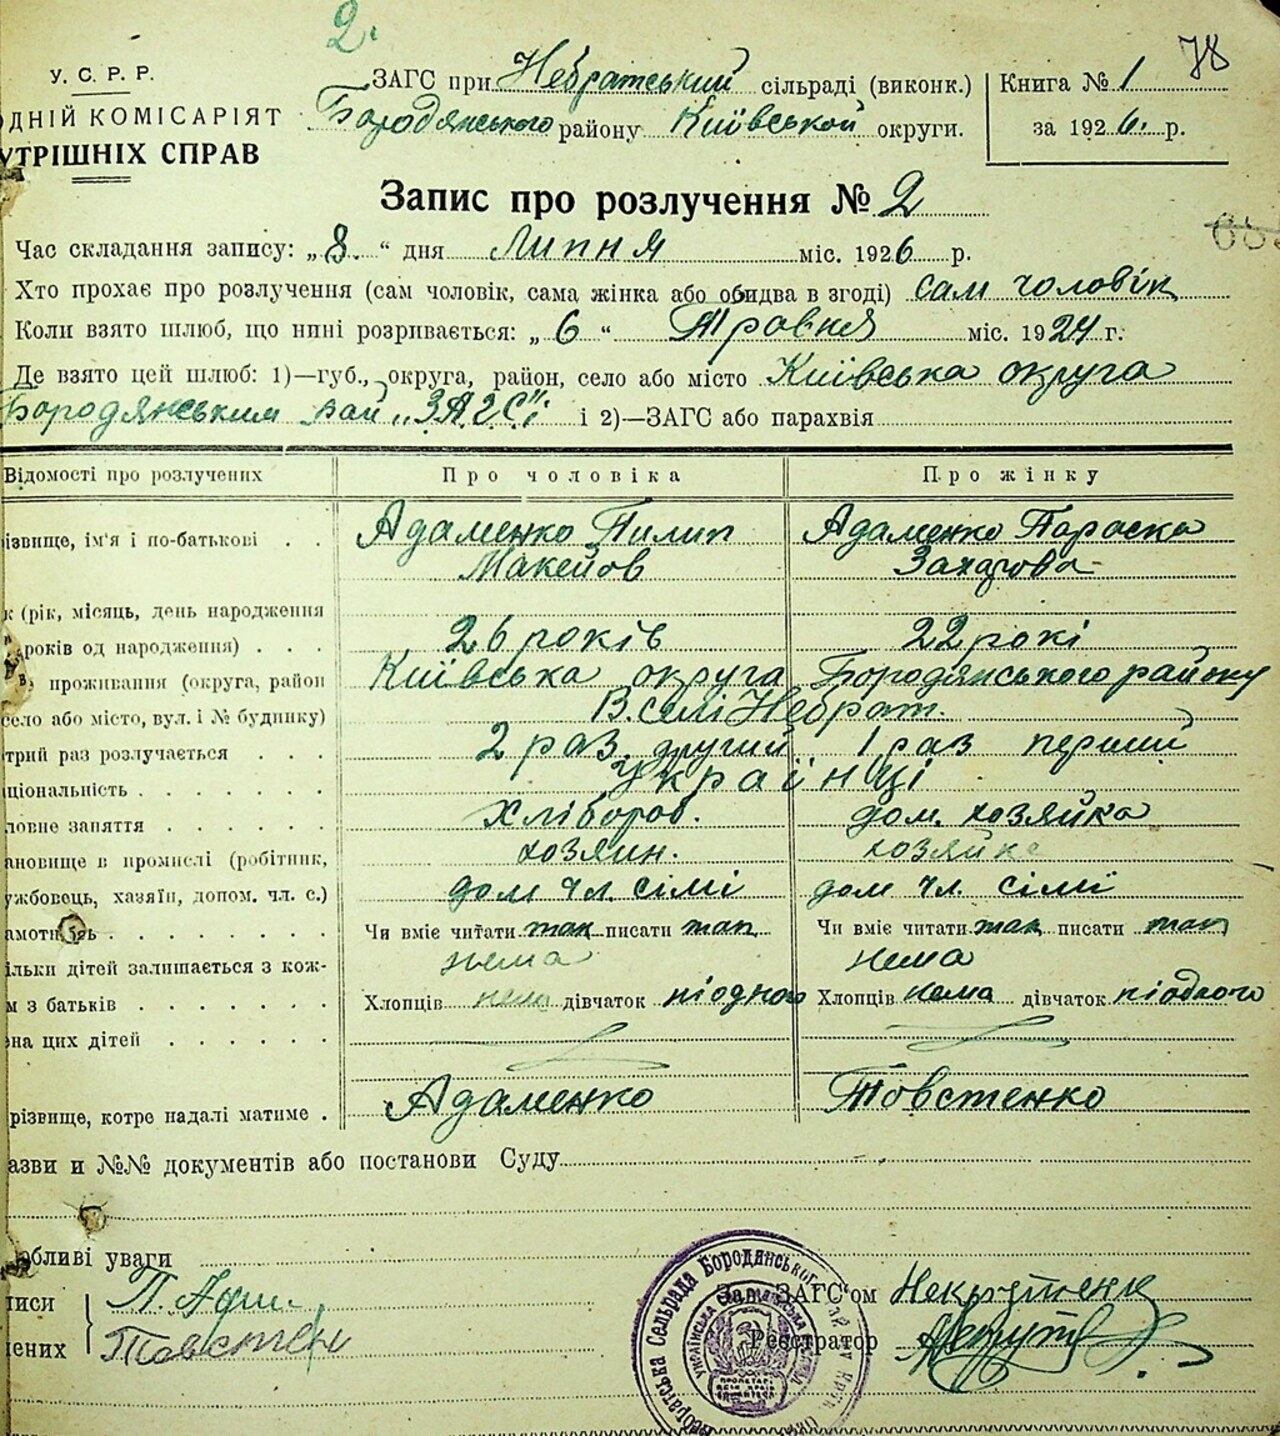 2.
78
У. С. Р. Р.
ОДНІЙ КОМІСАРІЯТ
УТРІШНІХ СПРАВ
ЗАГС при Небратський сільраді (виконк.)
Бородянського району Київської округи.
Книга № 1
за 1926. р.
Запис про розлучення № 2
Час складання запису: „8.“ дня Липня міс. 1926 р.
Хто прохає про розлучення (сам чоловік, сама жінка або обидва в згоді) сам чоловік
Коли взято шлюб, що нині розривається: „6“ Травня міс. 1924 г.
Де взято цей шлюб: 1)—губ., округа, район, село або місто Київська округа
Бородянським рай „ЗАГС“і і 2)—ЗАГС або парахвія
Відомості про розлучених Про чоловіка Про жінку
ізвище, ім'я і по-батькові . . Адаменко Пилип Адаменко Параска
Макейов Захарова
к (рік, місяць, день народження
років од народження) . . . 26 років 22 рокі
проживання (округа, район Київська округа Бородянського району
село або місто, вул. і № будинку) В. селі Небрат.
трий раз розлучається . . . 2 раз другий 1 раз перший
ціональність . . . . . . . Українці
ловне заняття . . . . . . Хлібороб. дом. хозяйка
ановище в промислі (робітник, хозяин. хозяйка
ужбовець, хазяїн, допом. чл. с.) дом чл. сімі дом чл. сімї
амотність . . . . . . . . Чи вміє читати так писати так Чи вміє читати так писати так
ільки дітей залишається з кож- нема нема
м з батьків . . . . . . . Хлопців нема дівчаток ніодного Хлопців нема дівчаток ніодного
ена цих дітей . . . . . .
різвище, котре надалі матиме . Адаменко Товстенко
азви и №№ документів або постанови Суду
обливі уваги
писи
чених
П. Адам.
Товстен
Зав. ЗАГС'ом
Реєстратор
Небратська Сельрада Бородянського
ПРОЛЕТАРІ
ВСІХ КРАЇН